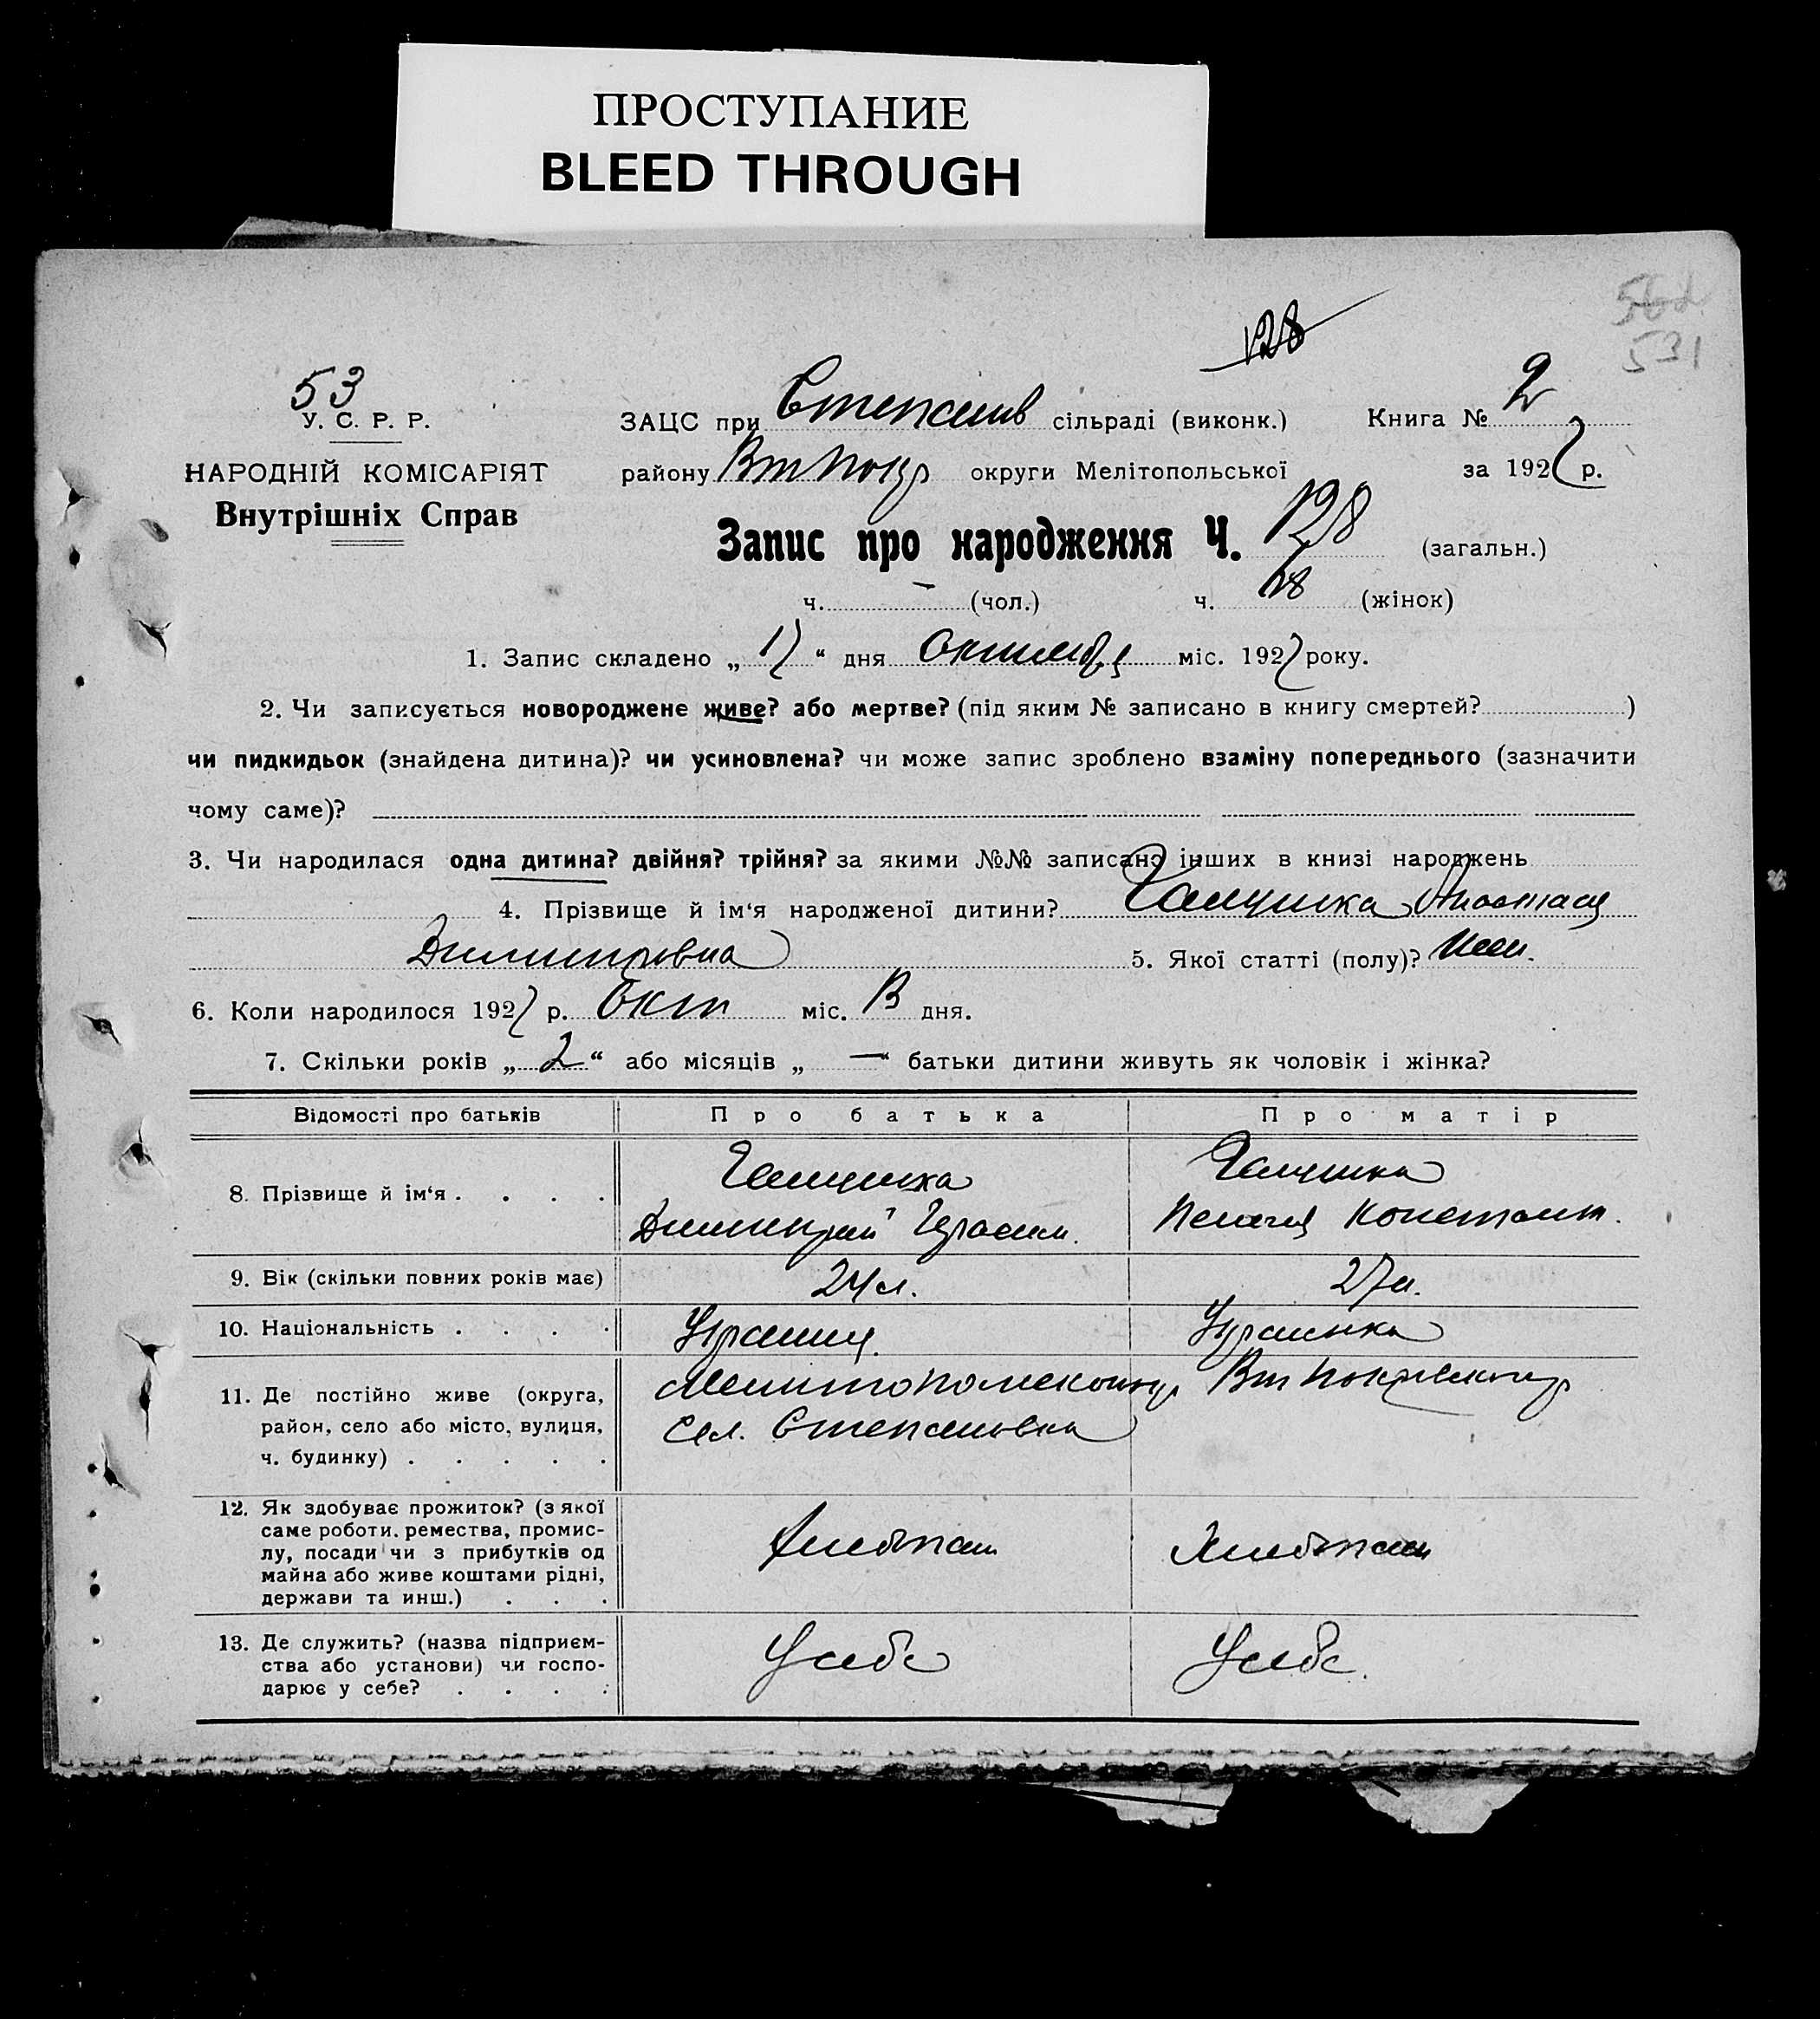 ПРОСТУПАНИЕ
BLEED THROUGH
128
531
53
У. С. Р. Р.
ЗАЦС при Степанив сільраді (виконк.) Книга № 2
НАРОДНІЙ КОМІСАРІЯТ
району Вт Покр округи Мелітопольської за 1927 р.
Внутрішніх Справ
Запис про народження Ч. 128 (загальн.)
ч. — (чол.) ч. (жінок)
1. Запис складено „17“ дня Октября міс. 1927 року.
2. Чи записується новороджене живе? або мертве? (під яким № записано в книгу смертей? )
чи пидкидьок (знайдена дитина)? чи усиновлена? чи може запис зроблено взаміну попереднього (зазначити
чому саме)?
3. Чи народилася одна дитина? двійня? трійня? за якими №№ записано інших в книзі народжень
4. Прізвище й ім‘я народженої дитини? Галушка Анастася
Димитровна 5. Якої статті (полу)? жен.
6. Коли народилося 1927 р. Окт міс. дня.
7. Скільки років „2“ або місяців „—“ батьки дитини живуть як чоловік і жінка?
Відомості про батьків Про батька Про матір
8. Прізвище й ім‘я . . . . Галушка Галушка
Димитрий Герасим. Пелагея Константин.
9. Вік (скільки повних років має) 24 л. 27 л.
10. Національність . . . . Украинец. Украинка
11. Де постійно живе (округа, Мелитопольского окр Вт Покровского р
район, село або місто, вулиця, сел. Степановка
ч. будинку) . . . . .
12. Як здобуває прожиток? (з якої
саме роботи. ремества, промис-
лу, посади чи з прибутків од Хлебопаш Хлебопаш
майна або живе коштами рідні,
держави та инш.) . . .
13. Де служить? (назва підприєм-
ства або установи) чи госпо- У себе У себе.
дарює у себе? . . . .